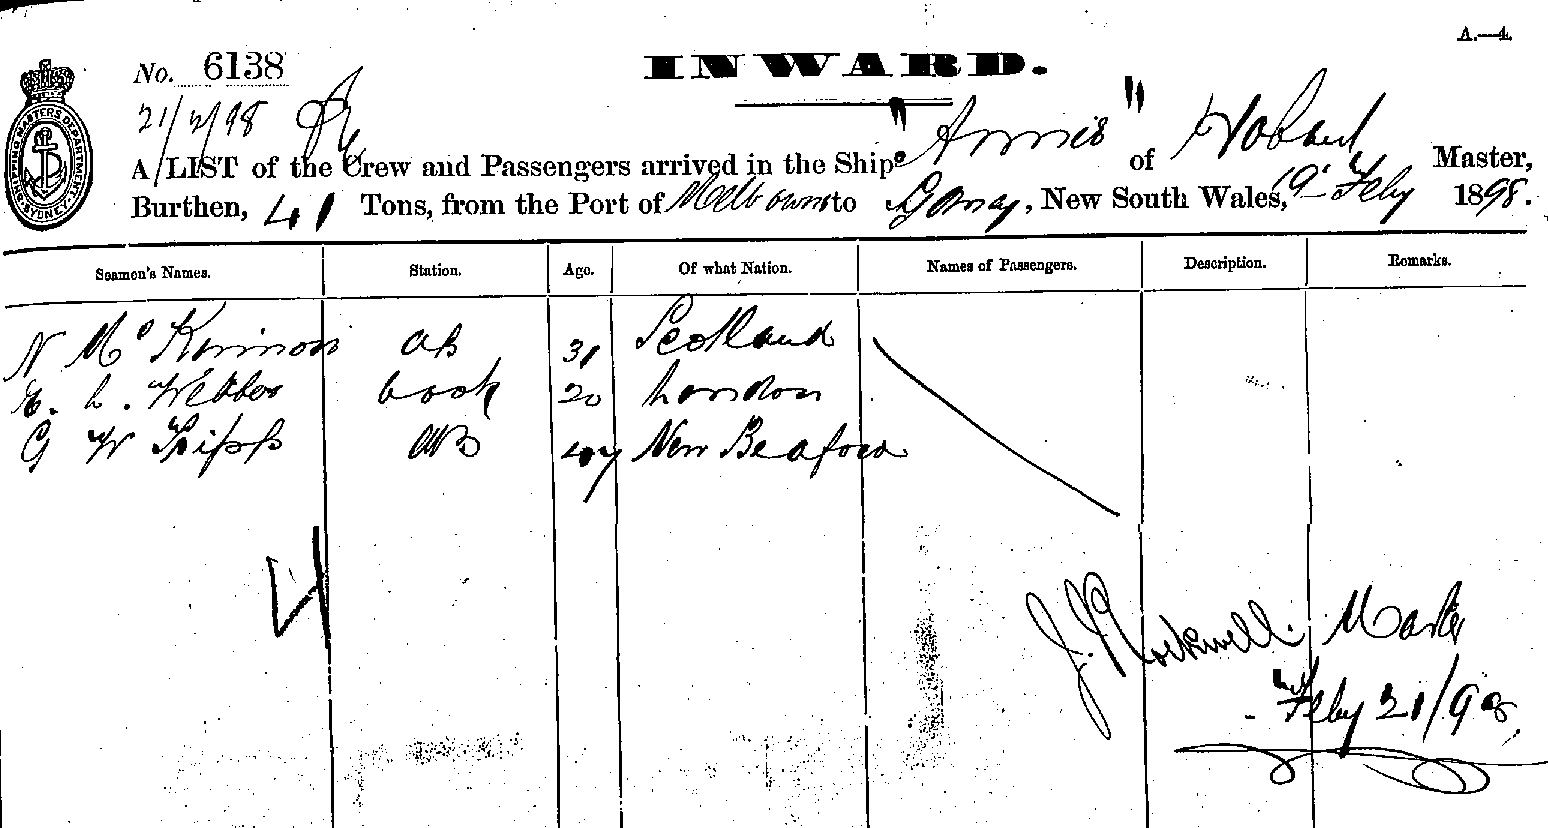 A.—4.
No. 6138
INWARD.
21/2/98
A LIST of the Crew and Passengers arrived in the Ship "Annie" of Hobart Master,
Burthen, 41 Tons, from the Port of Melbourne to , New South Wales, 19 Feby 1898.
SHIPPING MASTERS DEPARTMENT SYDNEY
Seamen's Names. Station. Age. Of what Nation. Names of Passengers. Description. Remarks.
N Mc Kinnon AB 31 Scotland
E. L. Webber Cook 20 London
G W Tripp AB 47 New Beaford
4
J. J. Rockwell. Master
Feby 21/98